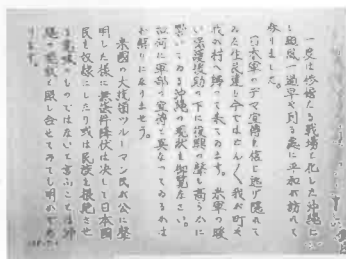 一度は惨憺たる戦場と化した沖縄に
も最後一過早や到る處に平和が訪れて
参りました。
日本軍のデマ宣傳を信じ逃げ隠れて
ゐた住民達も今ではだん〳〵我が町や
我が村へ帰って来てゐます。米軍の暖
い保護援助の下に復興の聲も高らかに
響いてゐる沖縄の現状を御覧なさい。
如何に軍部の宣傳と異なってゐるかは
お解りになりませう。
米國の大統領ツルーマン氏が公に聲
明した様に無條件降伏は決して日本國
民を奴隷にしたり或は民族を根絶させ
る意味のものではないと言ふことは沖
縄の現状と照し合せてみても明かであ
ります。